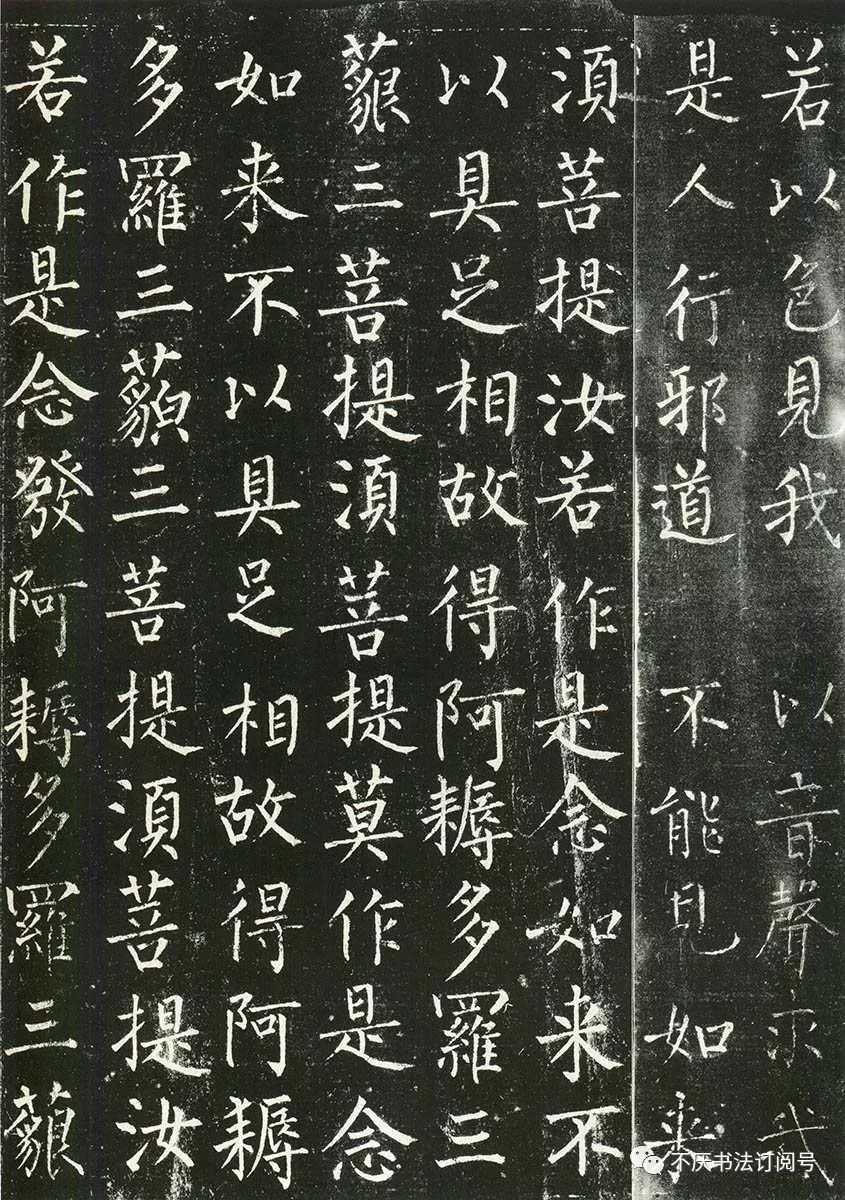 若以色見我 以音聲求我
是人行邪道 不能見如来
湏菩提汝若作是念如来不
以具足相故得阿耨多羅三
藐三菩提湏菩提莫作是念
如来不以具足相故得阿耨
多羅三藐三菩提湏菩提汝
若作是念發阿耨多羅三藐
不厌书法订阅号